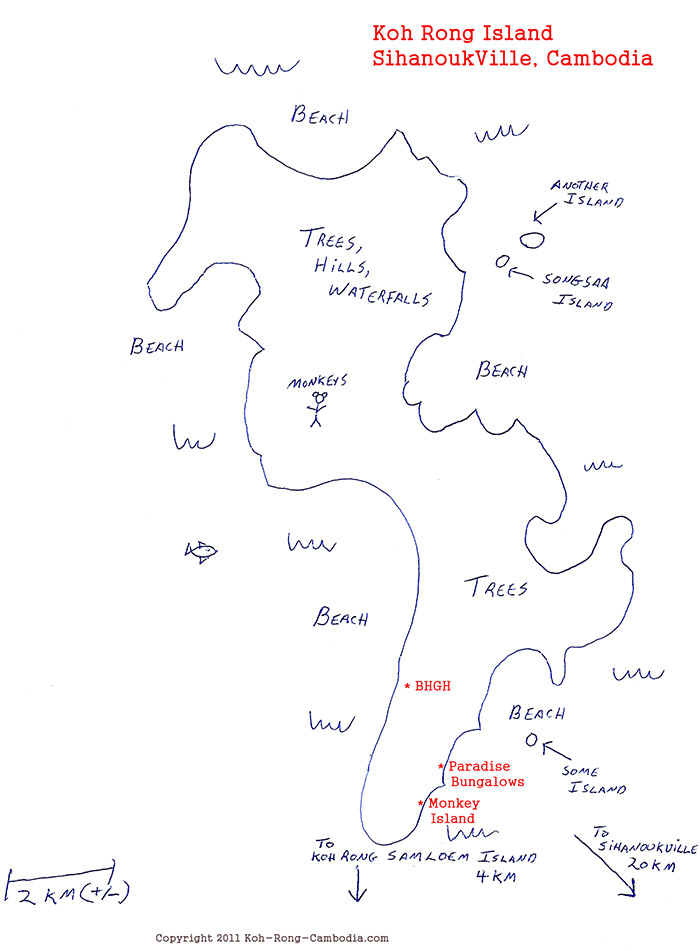 Koh Rong Island
SihanoukVille, Cambodia
BEACH
ANOTHER
ISLAND
TREES,
HILLS,
WATERFALLS
SONGSAA
ISLAND
BEACH
BEACH
MONKEYS
TREES
BEACH
* BHGH
BEACH
* Paradise
Bungalows
SOME
ISLAND
* Monkey
Island
TO
KOH RONG SAMLOEM ISLAND
4KM
TO
SIHANOUKVILLE
20KM
2 KM (+/-)
Copyright 2011 Koh-Rong-Cambodia.com